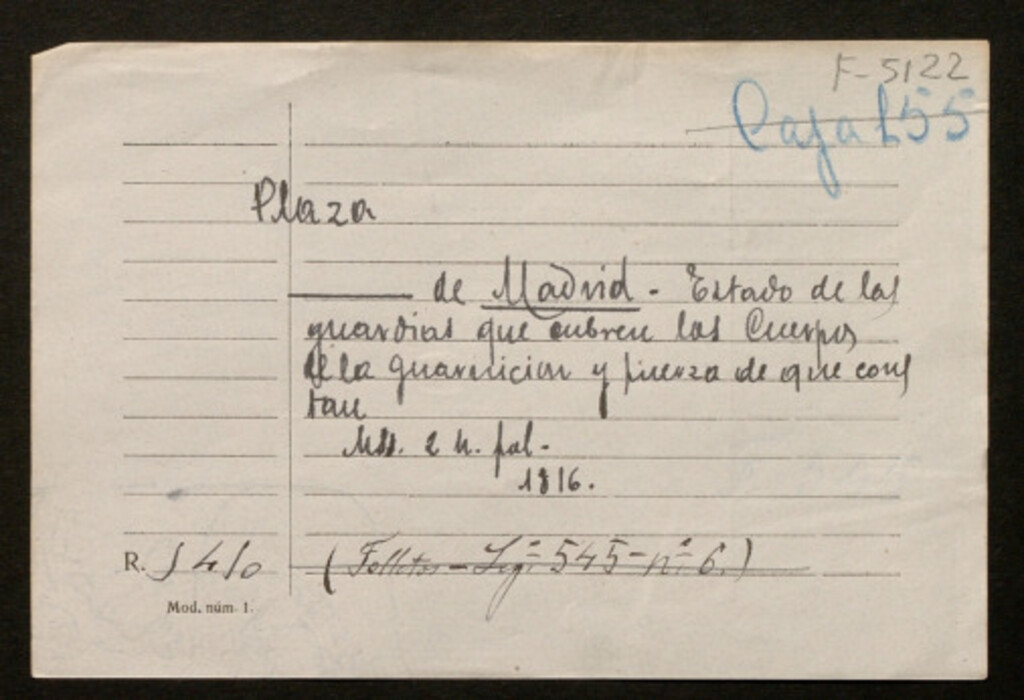 F-5122
Caja 155
Plaza
de Madrid - Estado de las
guardias que cubren los Cuerpos
de la guarnicion y fuerza de que cons
tan
Mss. 2 h. fol-
1816.
(Folletos - Leg.º 545 - n.º 6.)
R. 5410
Mod. núm. 1.